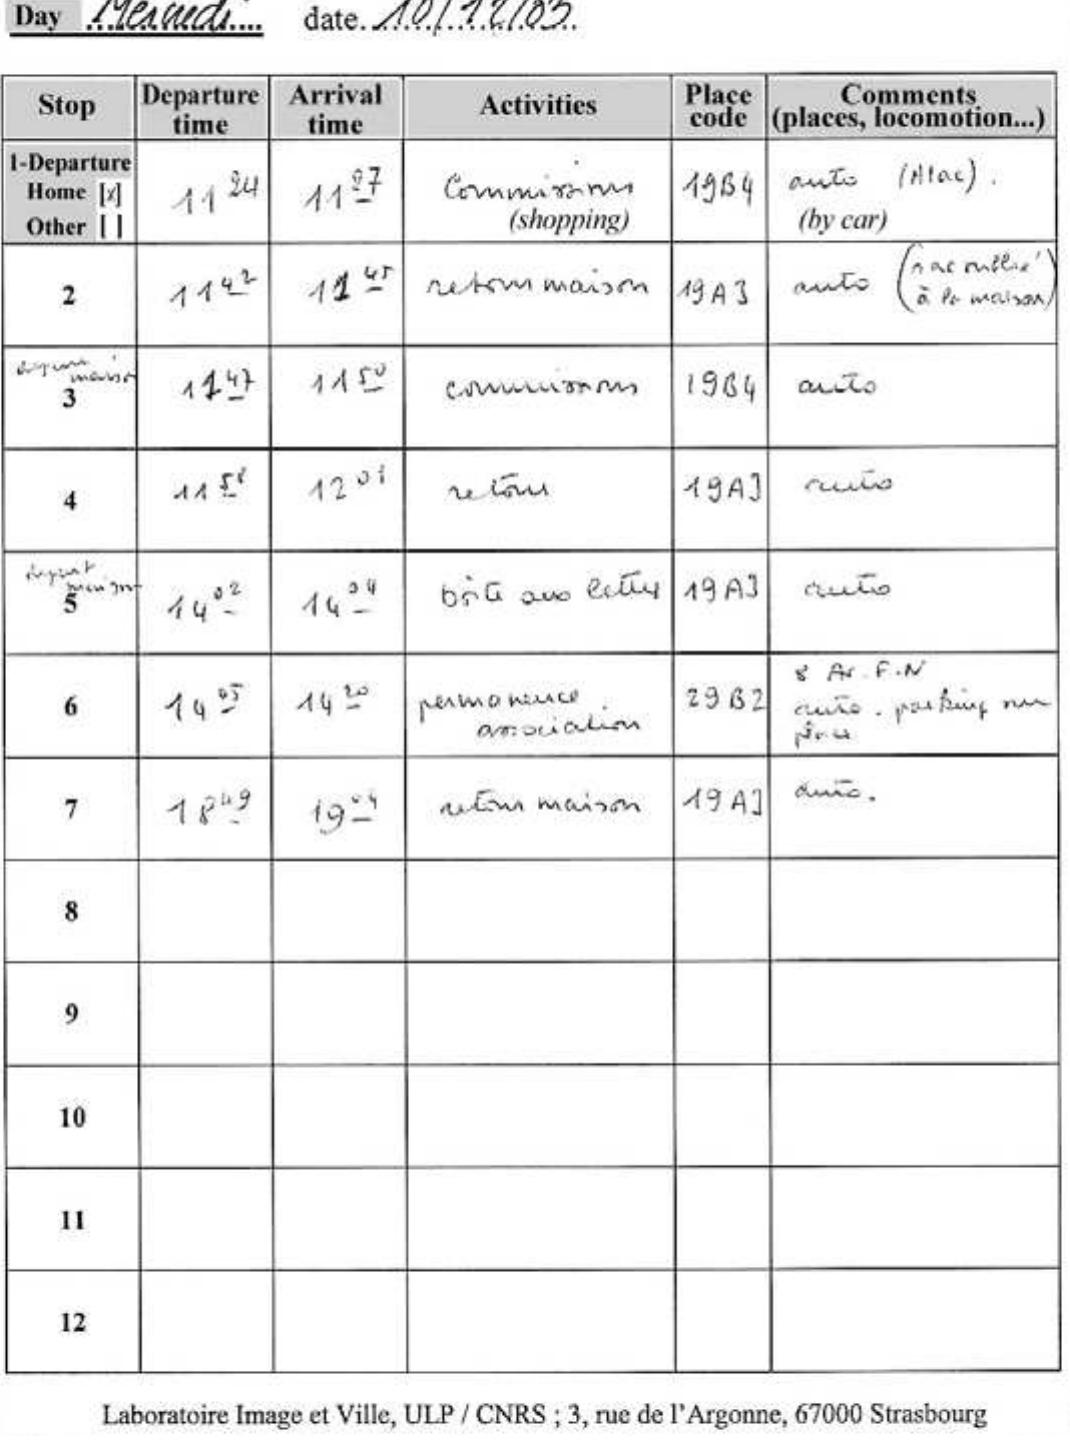 Day Mercredi date. 10/12/03.
Stop Departure time Arrival time Activities Place code Comments (places, locomotion...)
1-Departure
Home [x] 11 24 11 27 Commissions 19B4 auto (Atac).
Other [ ] (shopping) (by car)
2 11 42 11 45 retour maison 19A3 auto (sac oublié à la maison)
depart maison
3 11 47 11 50 commissions 19B4 auto
4 11 58 12 01 retour 19A3 auto
depart maison
5 14 02 14 04 boîte aux lettres 19A3 auto
6 14 05 14 20 permanence association 29B2 auto. parking sur place
7 18 49 19 04 retour maison 19A3 auto.
8
9
10
11
12
Laboratoire Image et Ville, ULP / CNRS ; 3, rue de l'Argonne, 67000 Strasbourg